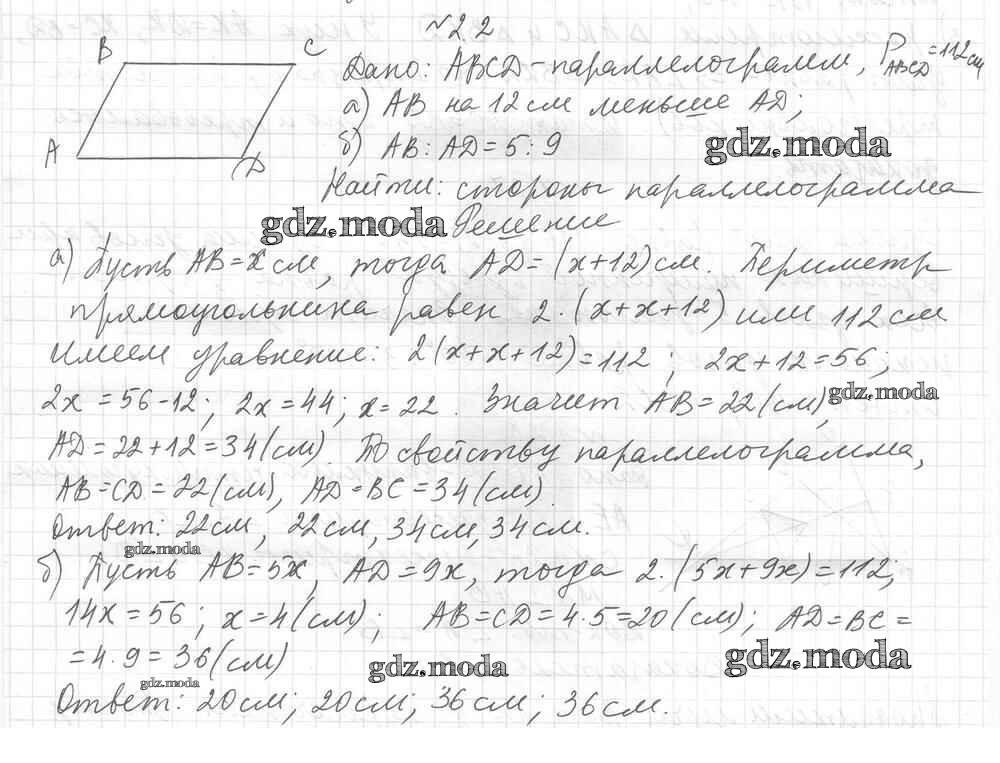 №2.2
B C
A D
Дано: ABCD - параллелограмм, P_ABCD = 112 см
а) AB на 12 см меньше AD;
б) AB : AD = 5 : 9
gdz.moda
Найти: стороны параллелограмма
gdz.moda
Решение
а) Пусть AB = x см, тогда AD = (x+12) см. Периметр
прямоугольника равен 2·(x+x+12) или 112 см
Имеем уравнение: 2(x+x+12)=112; 2x+12=56;
2x = 56-12; 2x = 44; x = 22. Значит AB = 22 (см),
gdz.moda
AD = 22+12 = 34 (см). По свойству параллелограмма,
AB = CD = 22 (см), AD = BC = 34 (см).
Ответ: 22 см, 22 см, 34 см, 34 см.
gdz.moda
б) Пусть AB = 5x, AD = 9x, тогда 2·(5x+9x)=112;
14x = 56; x = 4 (см); AB = CD = 4·5 = 20 (см); AD = BC =
= 4·9 = 36 (см)
gdz.moda
gdz.moda
gdz.moda
Ответ: 20 см; 20 см; 36 см; 36 см.